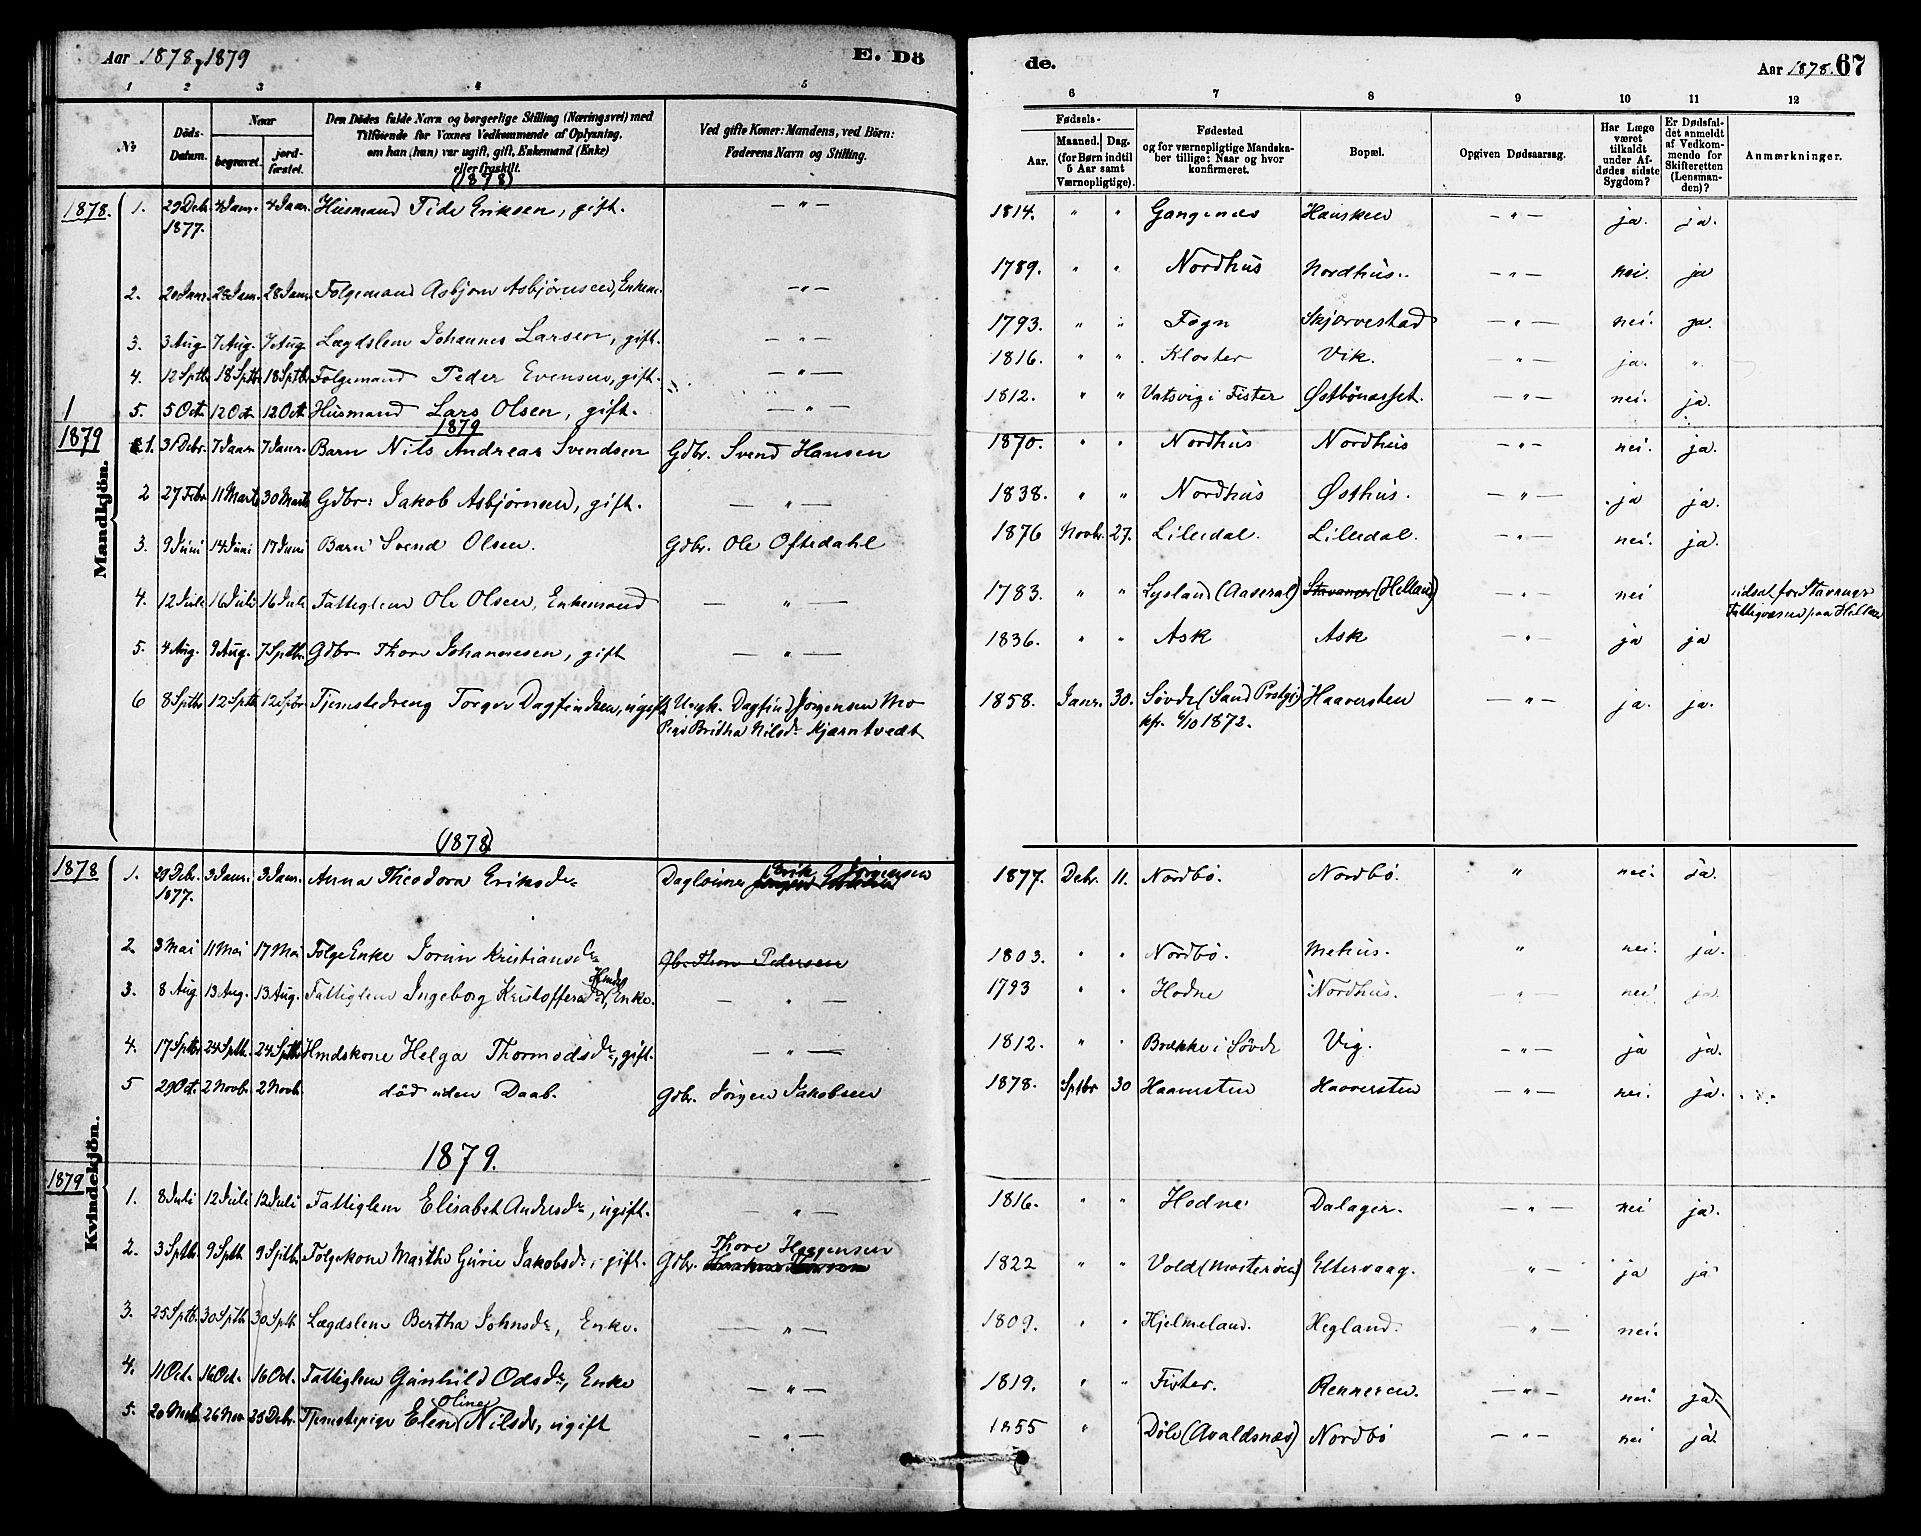 Aar 1878, 1879 E. Dö
de. Aar 1878. 67
1 2 3 4 5
6 7 8 9 10 11 12
№ Döds-Datum. Naar begravet. jordfæstet. Den Dödes fulde Navn og borgerlige Stilling (Næringsvei) med Tilföiende for Voxnes Vedkommende af Oplysning, om han (hun) var ugift, gift, Enkemand (Enke) eller fraskilt. Ved gifte Koner: Mandens, ved Börn: Faderens Navn og Stilling.
Fødsels- Aar. Maaned. Dag. (for Børn indtil 5 Aar samt Værnepligtige). Fødested og for værnepligtige Mandskaber tillige: Naar og hvor konfirmeret. Bopæl. Opgiven Dødsaarsag. Har Læge været tilkaldt under Afdødes sidste Sygdom? Er Dødsfaldet anmeldt af Vedkommende for Skifteretten (Lensmanden)? Anmærkninger.
(1878)
1878. 1. 29 Debr. 1877. 4 Janr. 4 Janr. Husmand Eriksen, gift. — " — 1814. " " Gangenes Hausken — " — ja. ja.
2. 20 Janr. 28 Janr. 28 Janr. Folgemand Asbjørn Asbjørnsen, Enkem. — " — 1789. " " Nordhus Nordhus. — " — nei. ja
3. 3 Aug 7 Aug. 7 Aug. Lægdslem Johannes Larsen, gift. — " — 1793. " " Fogn Skjørvestad — " — nei. ja.
4. 12 Sptb. 18 Sptb. 18 Sptb. Folgemand Peder Evensen, gift. — " — 1816. " " Kloster Vik. — " — ja. "
5. 5 Oct. 12 Oct. 12 Oct. Husmand Lars Olsen, gift. — " — 1812. " " Vatsvig i Fister Østbönesset. — " — nei. ja.
1
1879
1879
1. 31 Debr. 7 Janr. 7 Janr. Barn Nils Andreas Svendsen Gdbr. Svend Hansen 1870. " " Nordhus Nordhus — " — nei. ja.
2 27 Febr 11 Marts 30 Marts Gdbr: Jakob Asbjørnsen, gift. — " — 1838. " " Nordhus Østhus. — " — ja ja.
3. 9 Juni 14 Juni 17 Juni Barn Svend Olsen. Gdbr. Ole Oftedahl 1876 Novbr. 27. Liledal. Liledal. — " — nei. ja.
4. 12 Juli 16 Juli 16 Juli Fattiglem Ole Olsen, Enkemand — " — 1783. " " Lysland (Aaseral) Stavanger (Helland) — " — nei udsat for Stavanger Fattigvæsen paa Helland
5. 4 Aug. 9 Aug. 7 Sptbr. Gdbr Thore Johannesen, gift — " — 1836. " " Ask Ask — " — ja ja
6 8 Sptbr 12 Sptb 12 Sptbr. Tjenstedreng Torger Dagfindsen, ugift Ungk. Dagfind Jørgensen Mo Pige Britha Nilsdr Kjærntvedt 1858. Janr. 30. Søvde (Sand Prstgj.) kfr. 6/10 1872. Haaversten — " — ja. ja.
Mandkjön.
(1878)
1878 1. 29 Debr. 1877. 3 Janr. 3 Janr. Anna Theodora Eriksdr Daglønner Erik Jörgensen 1877. Debr. 11. Nordbö. Nordbö. " nei. ja.
2 3 Mai 11 Mai 17 Mai Folge Enke Jorun Kristiansdr Gb. Thore Pedersen 1803. " " Nordbö. Mehus. " nei. ja.
3. 8 Aug 13 Aug. 13 Aug. Fattiglem Ingeborg Kristoffersdr, Enke. — " — 1793 " " Hodne Nordhus. — " — nei ja.
4. 17 Sptbr 24 Sptb. 24 Sptb. Hmdskone Helga Thormodsdr, gift. — " — 1812. " " Brække i Søvde Vig. — " — ja ja.
5 29 Oct. 2 Novb. 2 Novb. död uden Daab. Gdbr. Jörgen Jakobsen 1878. Sptbr 30 Haaversten Haaversten — " — nei. ja.
1879.
1879 1. 8 Juli 12 Juli 12 Juli Fattiglem Elisabet Andersdr, ugift. — " — 1816. " " Hodne Dalager. — " — nei ja.
2. 3 Sptb. 9 Sptb 9 Sptb. Folgekone Marthe Gurie Jakobsdr, gift. Gdbr. Thore 1822 " " Vold (Mosterøen) Eltervaag. " — ja ja
3. 25 Sptb. 30 Sptb. 30 Sptb. Lægdslem Bertha Johnsdr, Enke. — " — 1809. " " Hjelmeland. Hegland. — " — nei.
4. 11 Oct. 16 Oct. 16 Oct. Fattiglem Gunhild Odsdr, Enke — " — 1819. " " Fister. Renneren. — " — nei ja.
5. 20 Nov. 26 Nov 25 Debr. Tjenstepige Elen Oline Nilsdr, ugift — " — 1855 " Döle (Avaldsnæs) Nordbö — " — nei ja.
Kvindekjön.